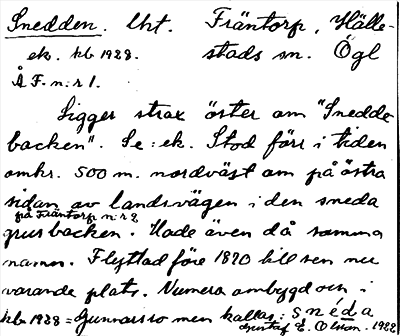 Snedden. lht. Fräntorp, Hälle-
ek. kb 1928. stads sn. Ögl
Å F. n:r 1.
Ligger strax öster om "Snedde
backen". Se: ek. Stod förr i tiden
omkr. 500 m. nordväst om på östra
sidan av landsvägen i den sneda
på Fräntorp n:r 2
grusbacken. Hade även då samma
namn. Flyttad före 1870 till sen nu
varande plats. Numera ombygd och i
kb 1928 = Gunnarsro men kallas: snéda
Gustaf E. Olsson. 1928